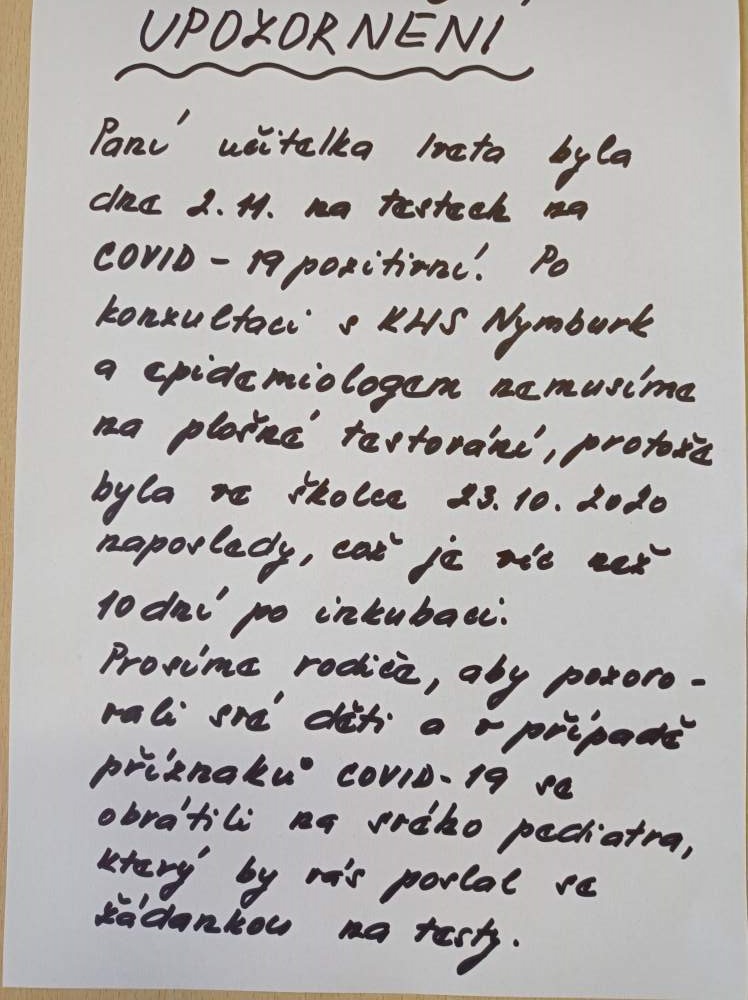 UPOZORNĚNÍ
Paní učitelka Iveta byla
dne 2.11. na testech na
COVID-19 pozitivní. Po
konzultaci s KHS Nymburk
a epidemiologem nemusíme
na plošné testování, protože
byla ve školce 23.10.2020
naposledy, což je víc než
10 dní po inkubaci.
Prosíme rodiče, aby pozoro-
vali své děti a v případě
příznaků COVID-19 se
obrátili na svého pediatra,
který by vás poslal se
žádankou na testy.